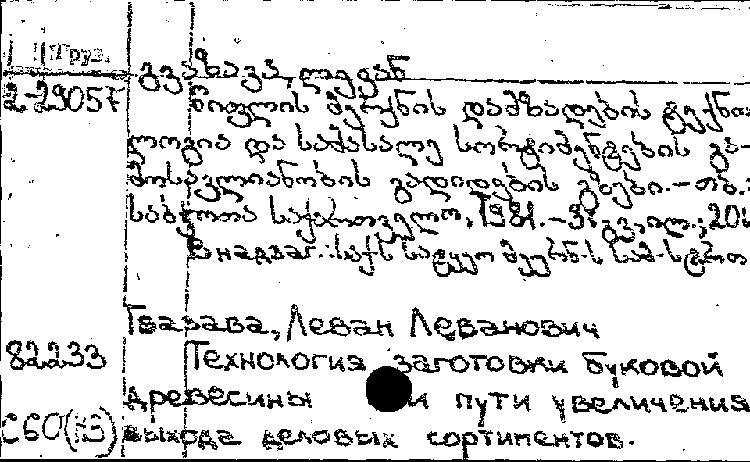 Груз.
გვაზავა, ლევან
2-29057 წიფლის მერქნის დამზადების ტექნო-
ლოგია და სამასალე სორტიმენტების გა-
მოსავლიანობის გადიდების გზები.—თბ.:
საბჭოთა საქართველო, 1981.—31 გვ., ილ.; 20
В надзаг.: საქ.სს სატყეო მეურნ-ს სამ-სტრო
Гвазава, Леван Леванович
82233 Технология заготовки буковой
древесины и пути увеличения
С60(43) выхода деловых сортиментов.